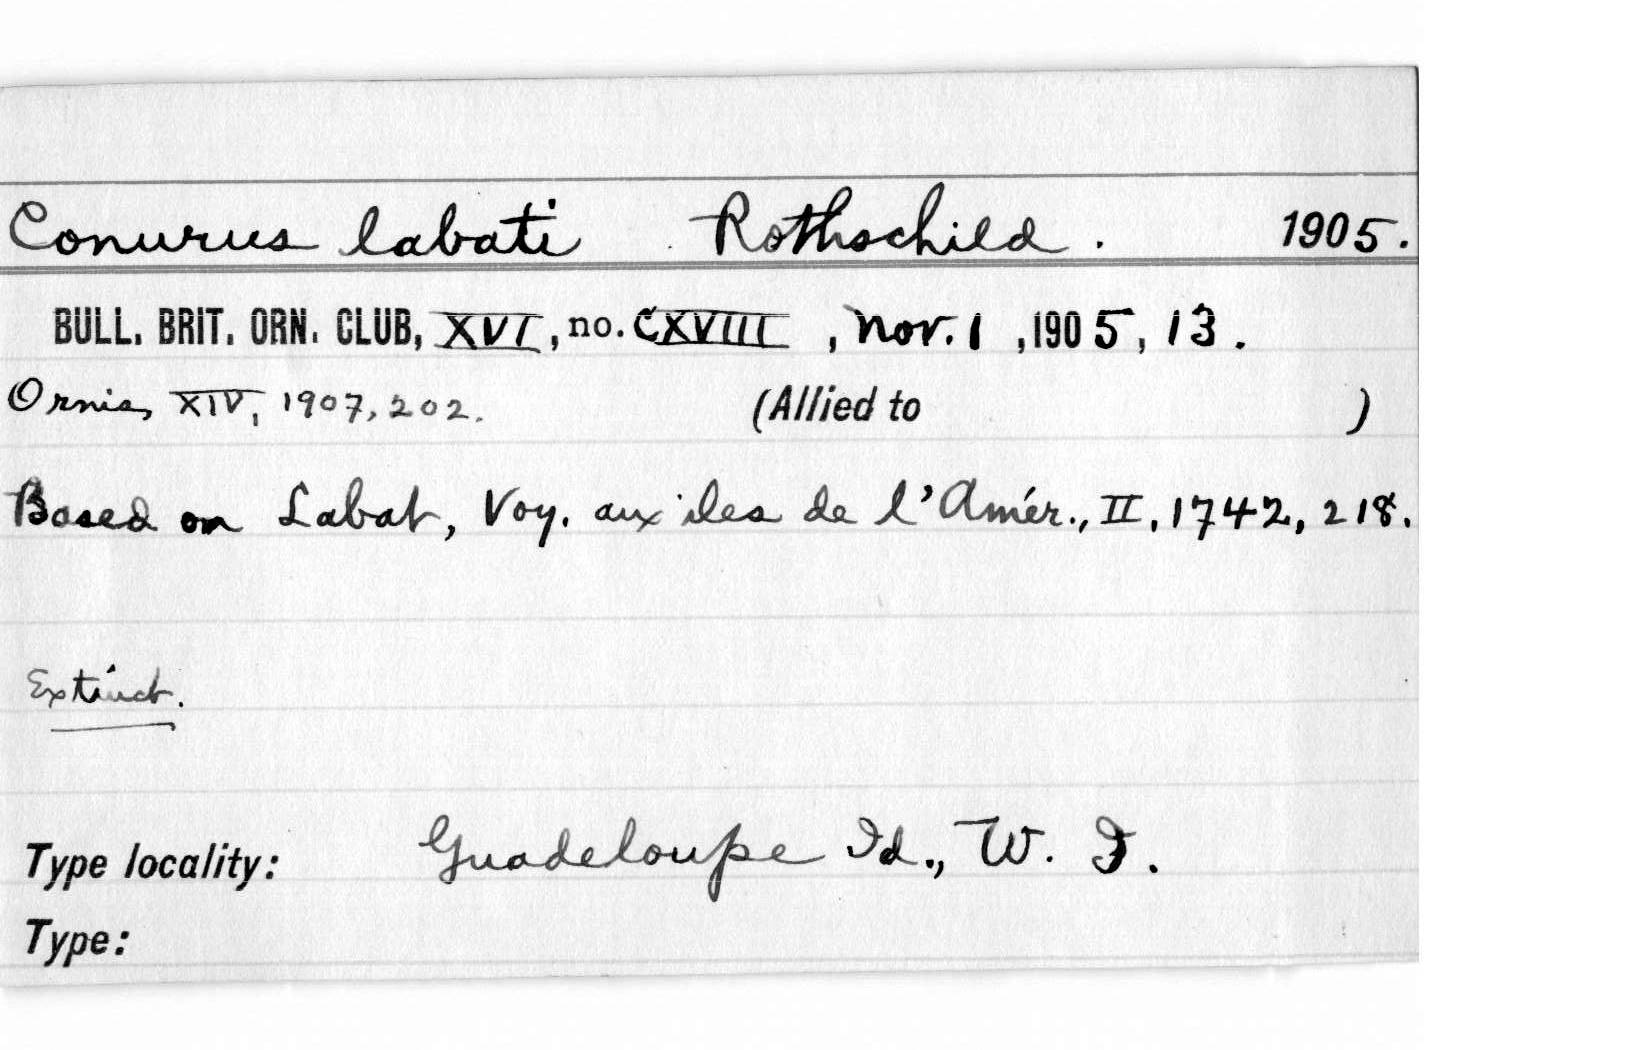 Conurus labati Rothschild. 1905.
BULL. BRIT. ORN. CLUB, XVI, no. CXVIII, Nov. 1, 1905, 13.
Ornis, XIV, 1907, 202. (Allied to )
Based on Labat, Voy. aux iles de l'Amér., II, 1742, 218.
Extinct.
Guadeloupe Id., W. I.
Type locality:
Type: